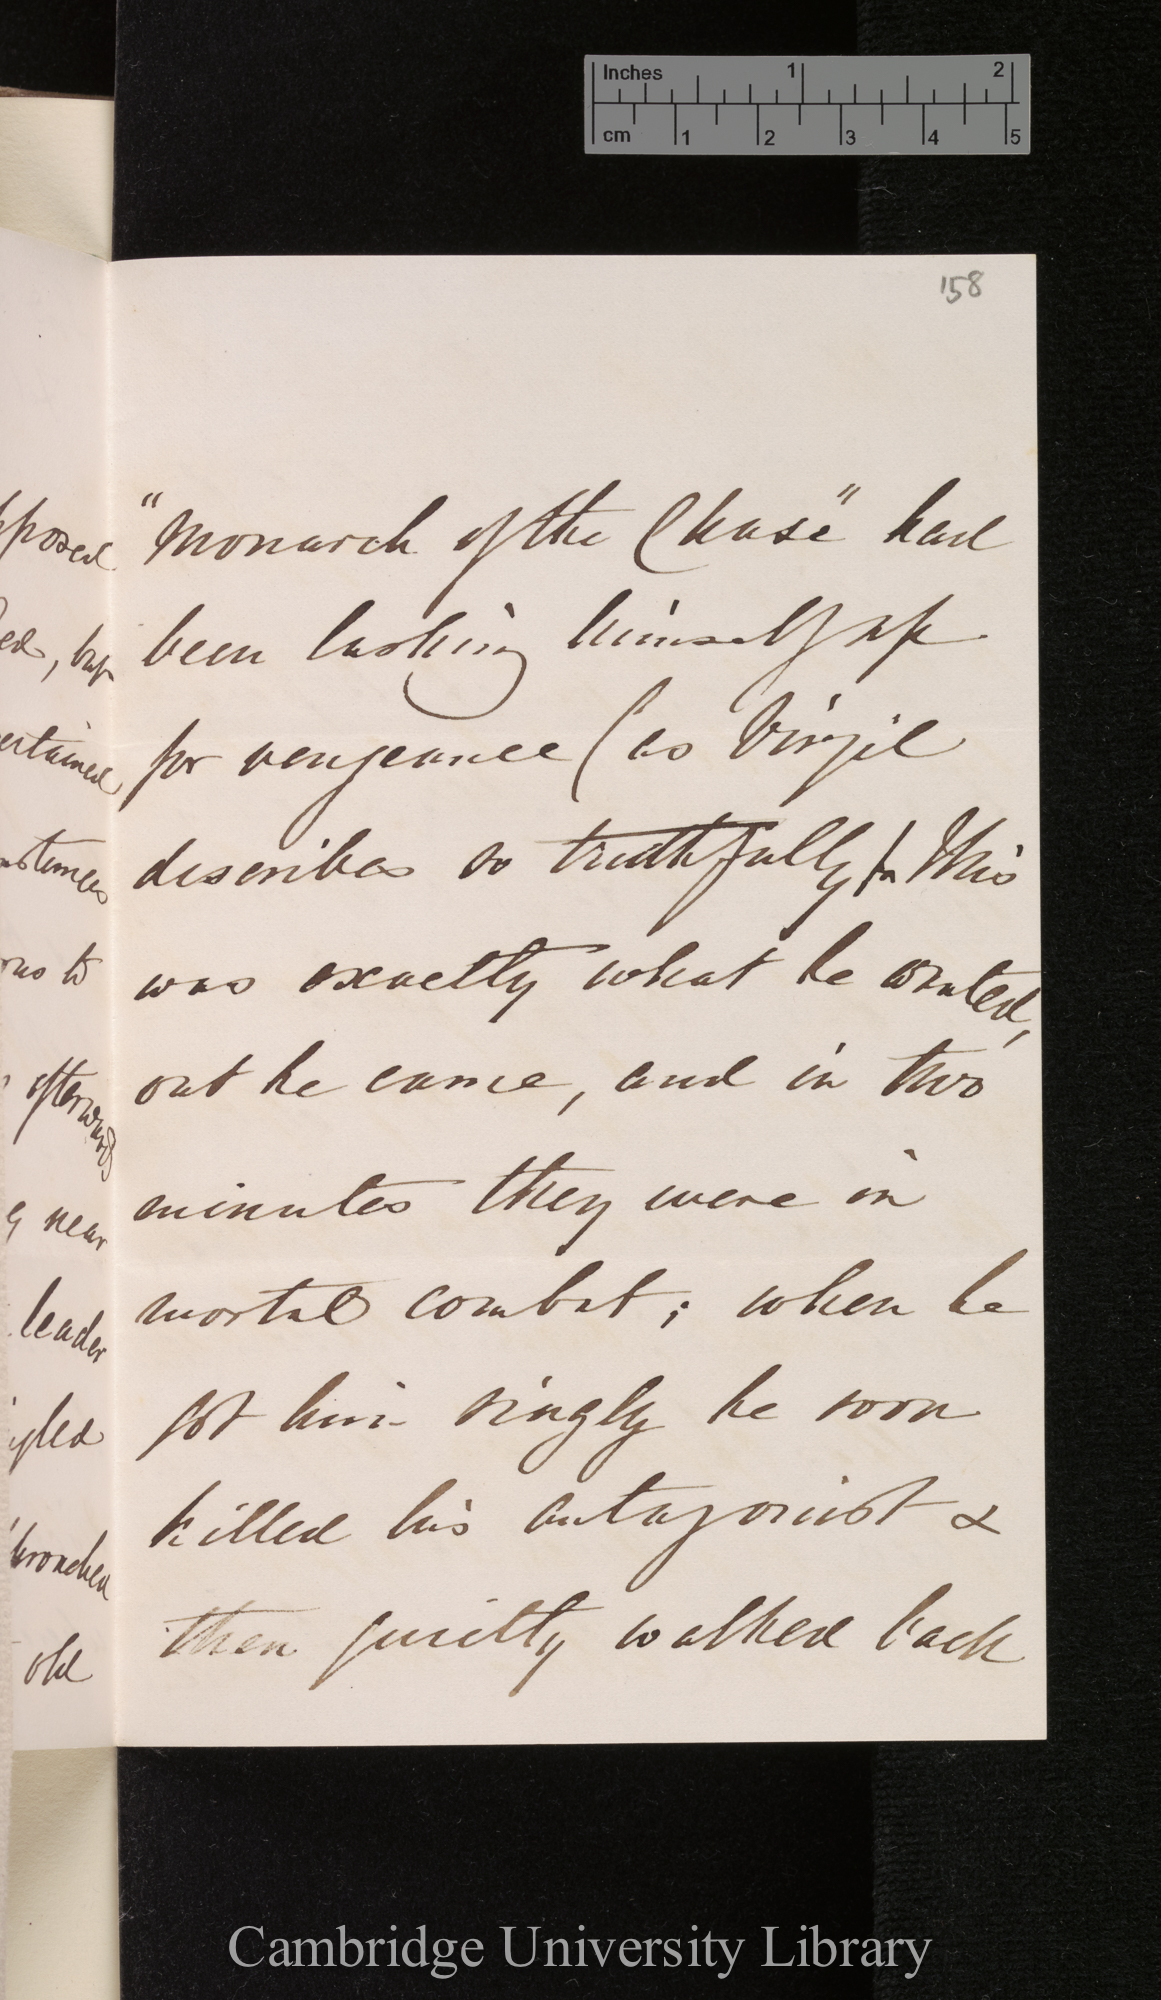 Inches 1 2
cm 1 2 3 4 5
158
"Monarch of the Chase" had
been lashing himself up
for vengeance (as Virgil
describes so truthfully) This
was exactly what he wanted,
out he came, and in two
minutes they were in
mortal combat; when he
got him singly he soon
killed his antagonist &
then quietly walked back
pposed
ed, but
ertained
nstances
ous to
afterwards
g near
leader
gled
broached
old
Cambridge University Library